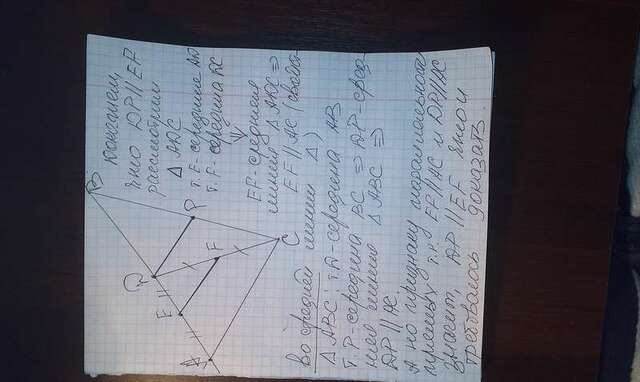 Докажем,
что DP || EF
рассмотрим
Δ ADC
т. E - середина AD
т. F - середина DC
⇓
EF - средняя
линия Δ ADC ⇒
EF || AC (свойст-
во средней линии Δ)
Δ ABC: т. D - середина AB
т. P - середина BC ⇒ DP сред
няя линия Δ ABC ⇒
DP || AC
А по признаку параллельност
прямых т.к. EF || AC и DP || AC
значит, DP || EF что и
требовалось доказать.
B
D
P
E
F
A
C